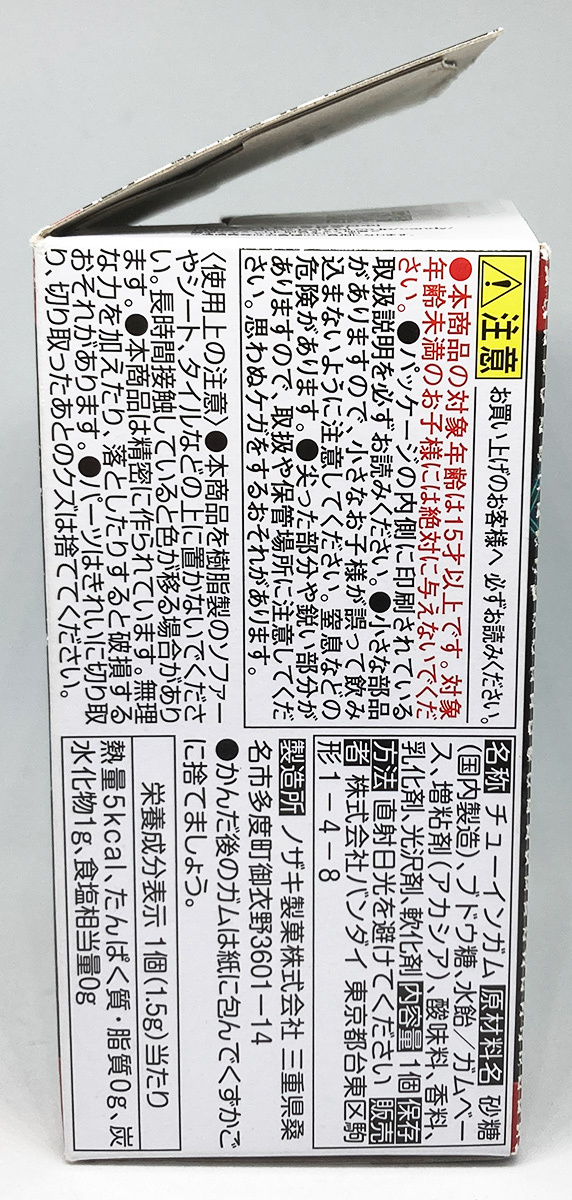 ⚠注意 お買い上げのお客様へ 必ずお読みください。
●本商品の対象年齢は15才以上です。対象
年齢未満のお子様には絶対に与えないでくだ
さい。●パッケージの内側に印刷されている
取扱説明を必ずお読みください。●小さな部品
がありますので、小さなお子様が誤って飲み
込まないように注意してください。窒息などの
危険があります。●尖った部分や鋭い部分が
ありますので、取扱や保管場所に注意してくだ
さい。思わぬケガをするおそれがあります。
〈使用上の注意〉●本商品を樹脂製のソファー
やシート、タイルなどの上に置かないでくださ
い。長時間接触していると色が移る場合があり
ます。●本商品は精密に作られています。無理
な力を加えたり、落としたりすると破損する
おそれがあります。●パーツはきれいに切り取
り、切り取ったあとのクズは捨ててください。
名称 チューインガム 原材料名 砂糖
(国内製造)、ブドウ糖、水飴/ガムベー
ス、増粘剤(アカシア)、酸味料、香料、
乳化剤、光沢剤、軟化剤 内容量 1個 保存
方法 直射日光を避けてください 販売
者 株式会社バンダイ 東京都台東区駒
形1-4-8
製造所 ノザキ製菓株式会社 三重県桑
名市多度町御衣野3601-14
●かんだ後のガムは紙に包んでくずかご
に捨てましょう。
栄養成分表示 1個(1.5g)当たり
熱量5kcal、たんぱく質・脂質0g、炭
水化物1g、食塩相当量0g